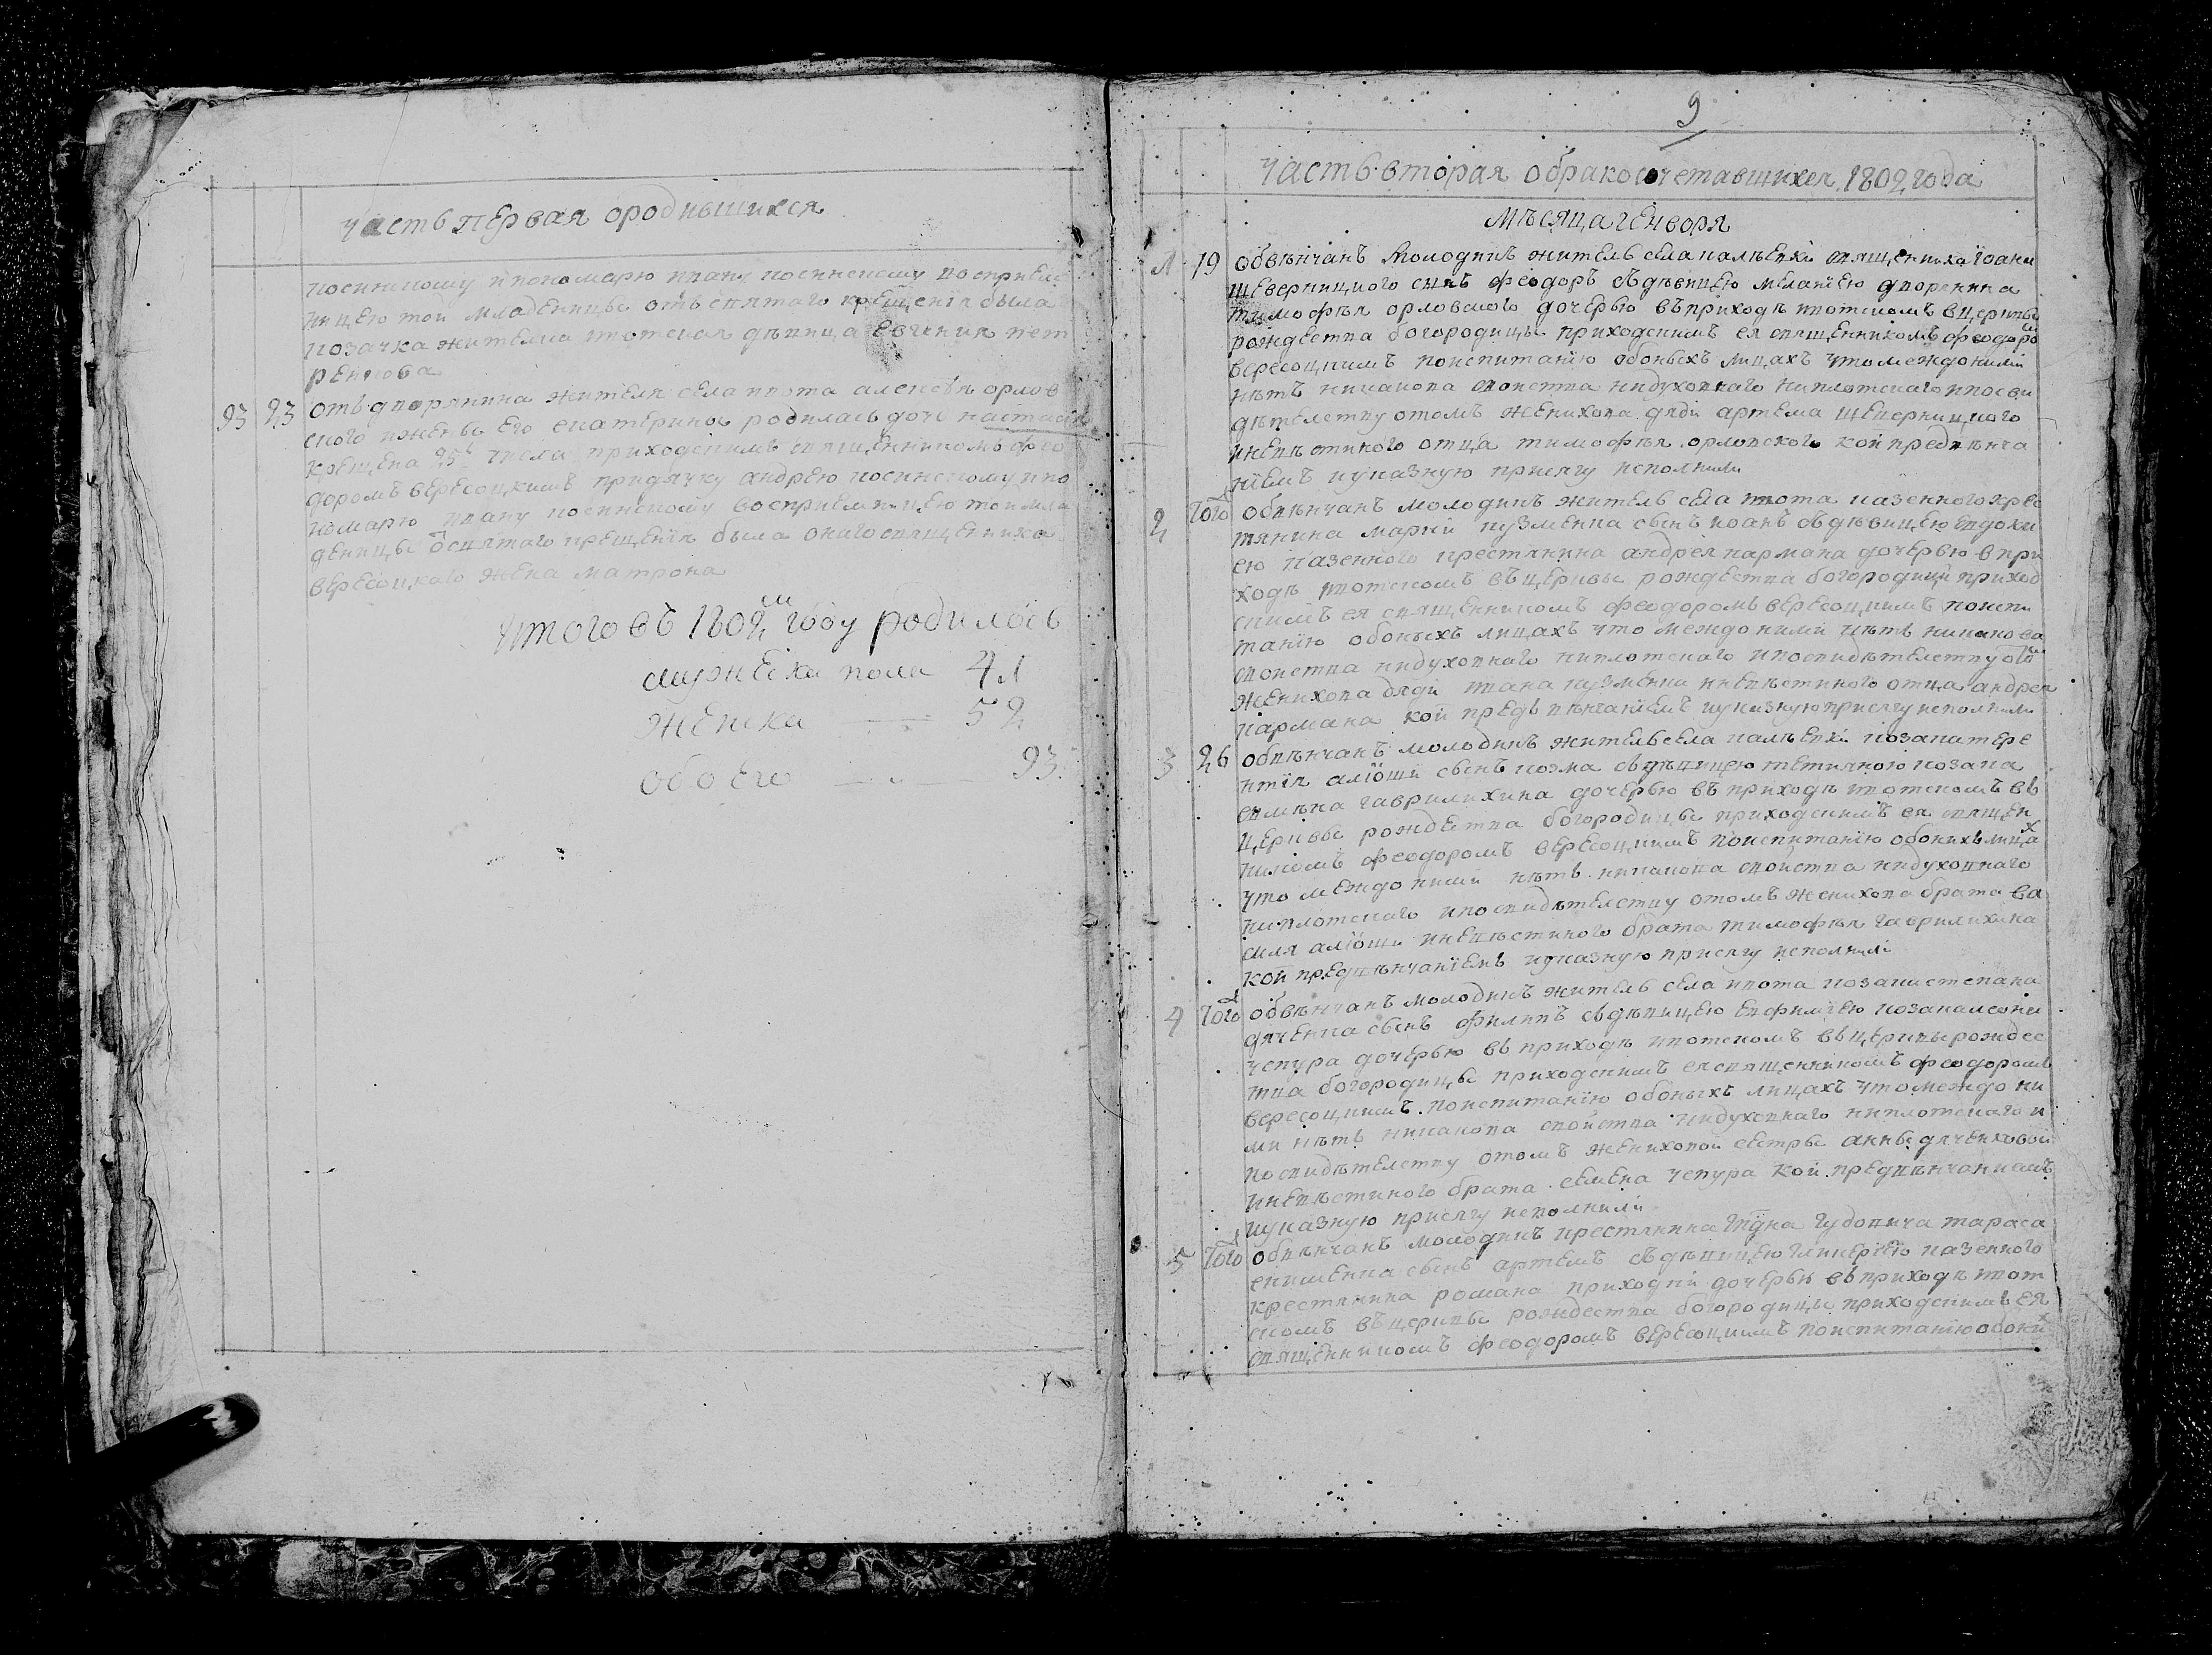 часть первая ородившихся
косинскому ипономарю ивану косинскому восприем
ницею той младеницы отъ святаго крещенїя была
козачка жителка ивотская дѣвица евгения пет
ренкова
93 23 отъ дворянина жителя села ивота алексѣя орлов
ского ижены его екатерины родилась дочь настасїя
крещена 25г числа приходскимъ священникомъ фео
доромъ вересоцкимъ придячку андрею косинскому ипо
номарю ивану косинскому восприемницею той мла
деницы ѿ святаго крещенїя была онаго священника
вересоцкаго жена матрона
итого въ 1802м году родилось
мужеска пола 41
женска 52
обоего 93
9
часть вторая обракосочетавшихся 1802 года
мѣсяца генворя
1 19 обвѣнчанъ молодикъ житель села калѣевки священника їоана
щеверницкого сынъ феодоръ здѣвицею меланїею дворянина
тимофѣя орловского дочерью въ приходѣ ивотскомъ вцеркви
рождества богородицы приходскимъ ея священникомъ феодоромъ
вересоцкимъ поиспитанїю обоныхъ лицахъ что междоними
нѣтъ никакова своиства нидуховнаго ниплотскаго ипосви
дѣтелству отомъ женихова дяди артема щеверницкого
иневѣстиного отца тимофѣя орловского кой предвѣнча
нїемъ иуказную присягу исполнили
2 тогож обвѣнчанъ молодикъ житель села ивота казенного крес
тянина марки кузменка сынъ иоанъ здѣвицею евдоки
ею казенного крестянина андрея кармана дочерью в при
ходѣ ивотскомъ въ церквы рождества богородици приход
скимъ ея священникомъ феодоромъ вересоцкимъ поиспи
танїю обоныхъ лицахъ что междоними нѣтъ никакова
своиства нидуховнаго ниплотскаго ипосвидѣтелству отомъ
женихова дяди ивана кузменка иневѣстиного отца андрея
кармана кой предъ вѣнчанїемъ иуказную присягу исполнили
3 26 обвѣнчанъ молодикъ житель села калѣевки козака тере
нтїя алїоши сынъ козма сьдѣвицею тетияною козака
симъна гаврилихина дочерью въ приходѣ ивотскомъ въ
церквы рождества богородицы приходскимъ ея священ
никомъ феодоромъ вересоцкимъ поиспитанїю обоныхъ лицах
что междо ними нѣтъ никакова своиства нидуховнаго
ниплотскаго ипосвидѣтелству отомъ женихова брата ва
силя алїоши иневѣстиного брата тимофѣя гаврилихина
кой предвѣнчанїемъ иуказную присягу исполнили
4 тогож обвѣнчанъ молодикъ житель села ивота козака степана
дяченка сынъ филипъ сьдѣвицею евфимїею козака леона
чепура дочерью въ приходѣ ивотскомъ въ церквы рождес
тва богородицы приходскимъ ея священникомъ феодоромъ
вересоцкимъ поиспитанїю обоныхъ лицахъ что междо ни
ми нѣтъ никакова своиства нидуховнаго ниплотскаго и
посвидѣтелству отомъ жениховой сестры анны дяченковой
иневѣстиного брата семена чепура кой предвѣнчаниемъ
иуказную присягу исполнили
5 тогож обвѣнчанъ молодикъ крестянина гѵдна гудовича тараса
екименка сынъ артемъ сьдѣвицею гликерїею казенного
крестянина романа приходки дочерью въ приходѣ ивот
скомъ въ церквы рождества богородицы приходскимъ ея
священникомъ феодоромъ вересоцкимъ поиспитанїю обоных